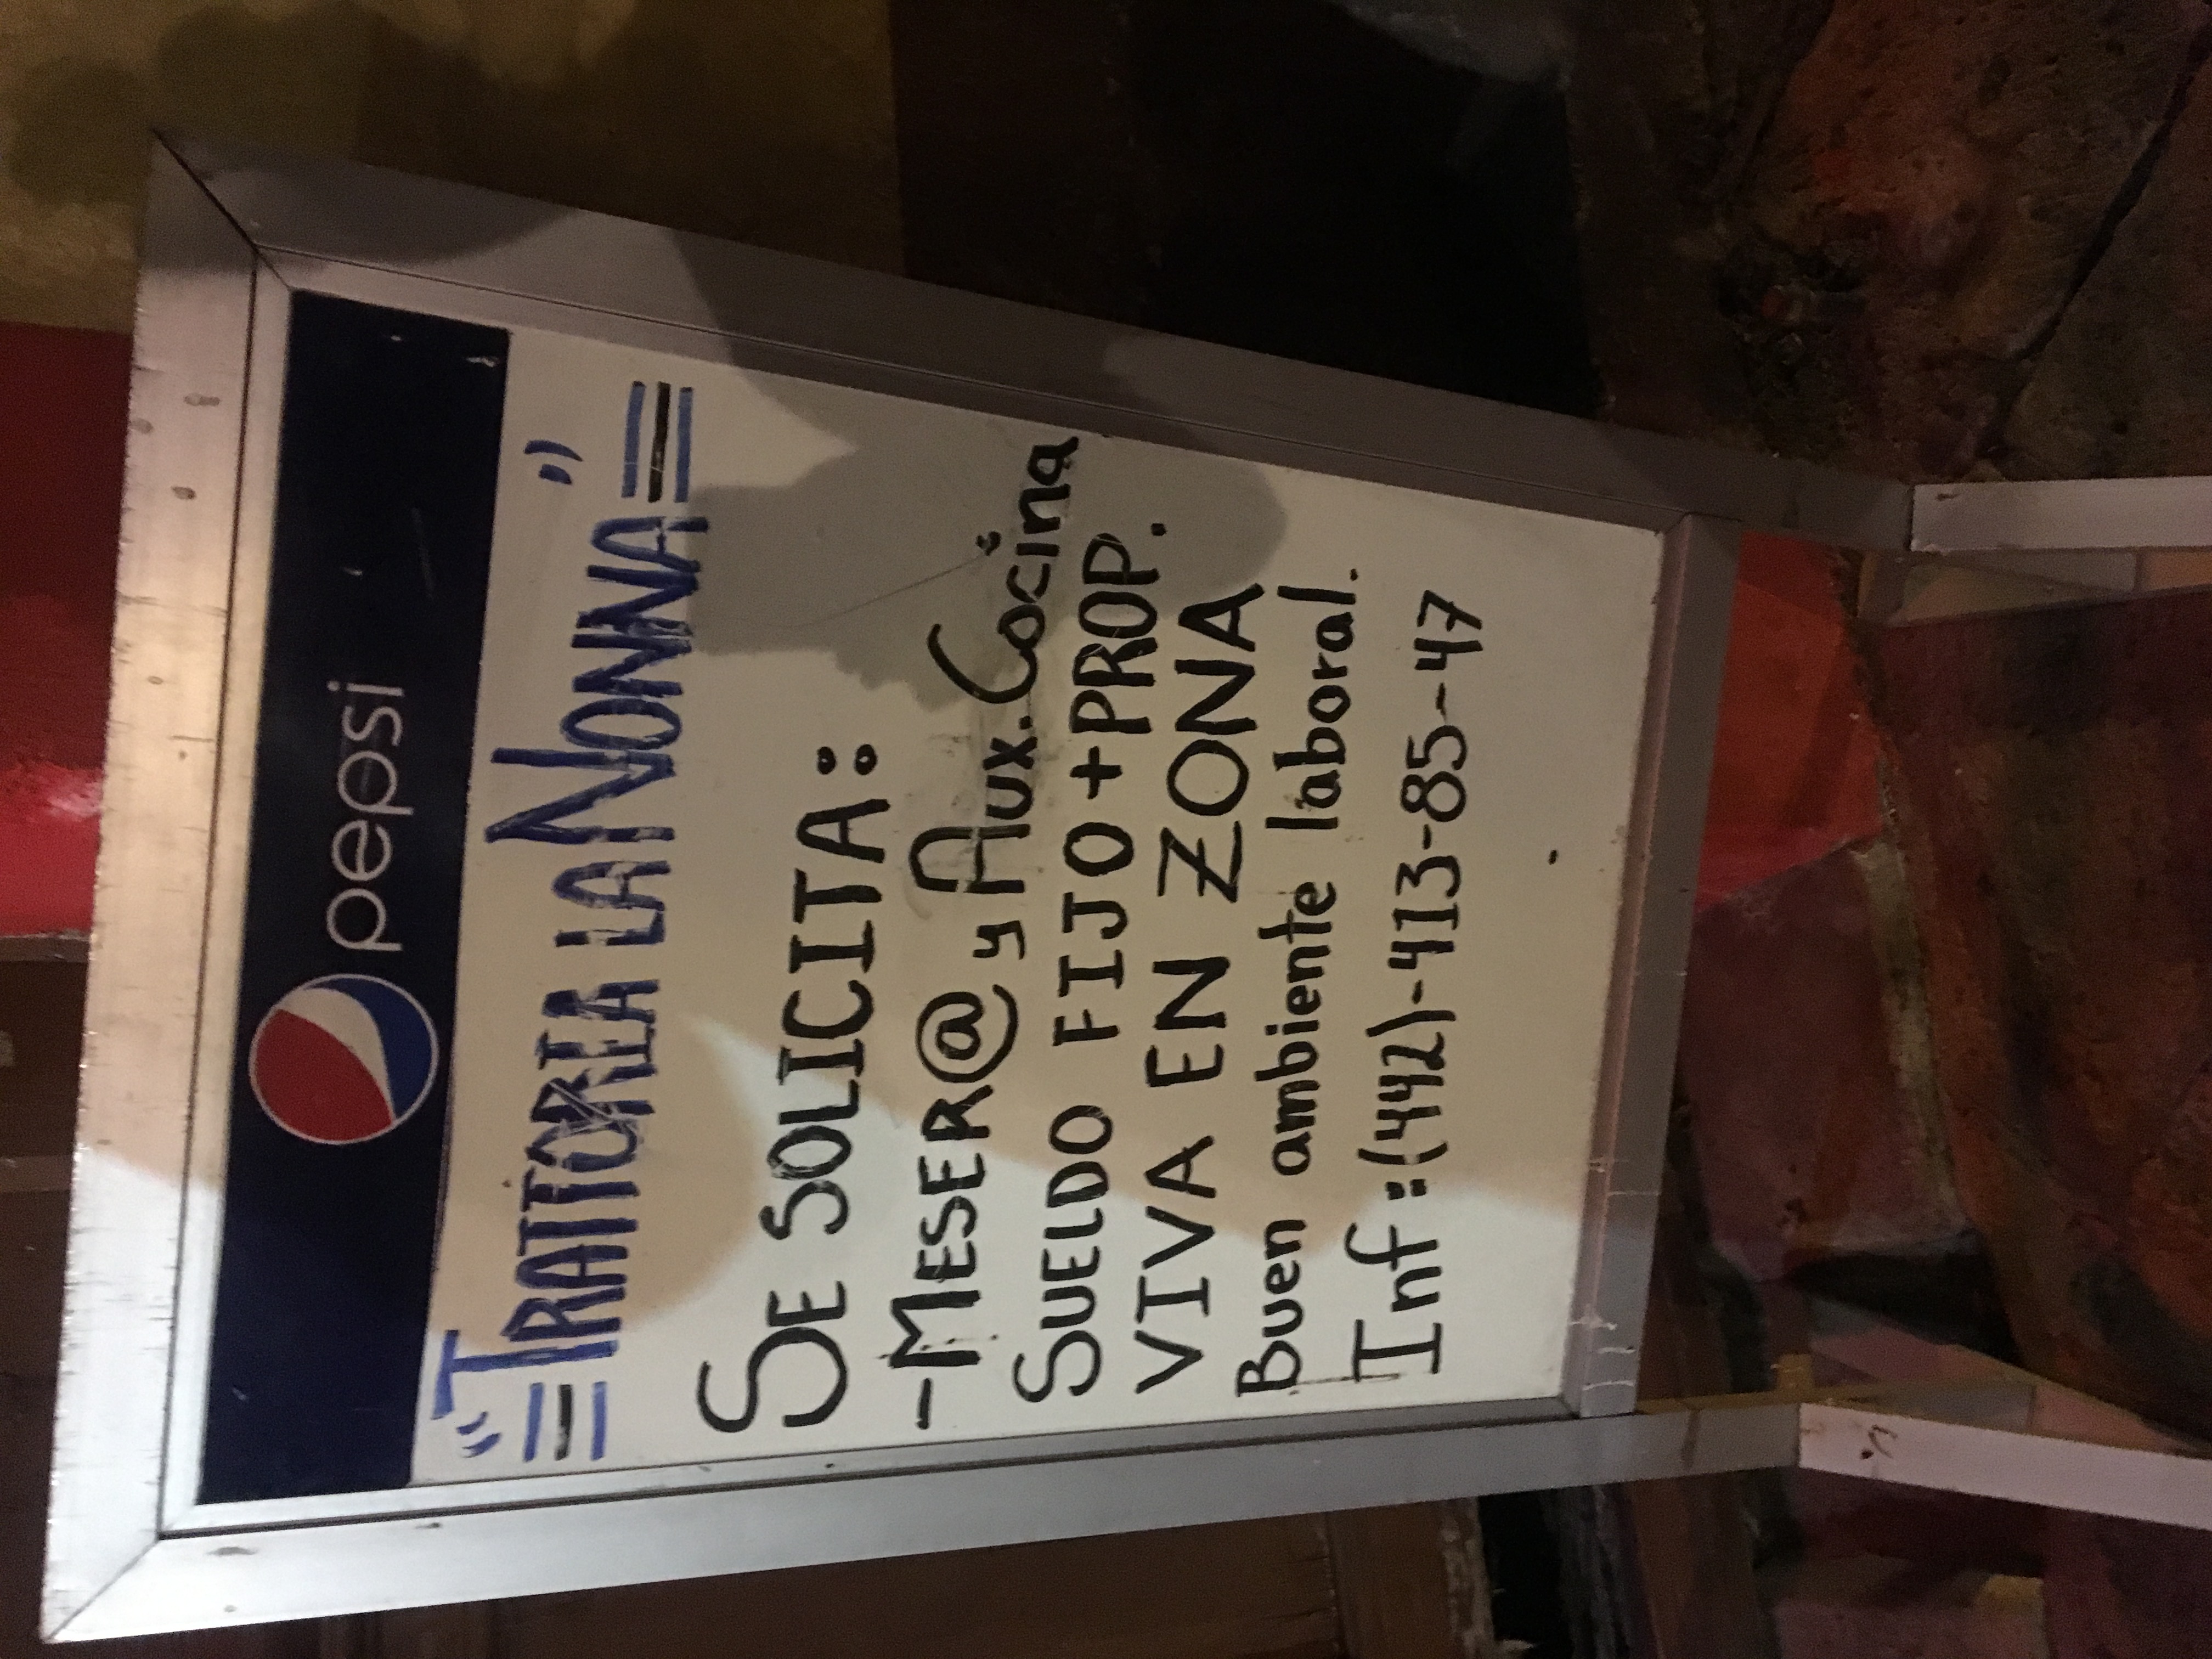 pepsi
"TRATTORIA LA NONNA"
SE SOLICITA:
-MESER@ y Aux. Cocina
SUELDO FIJO + PROP.
VIVA EN ZONA
Buen ambiente laboral.
Inf:(442)-413-85-47